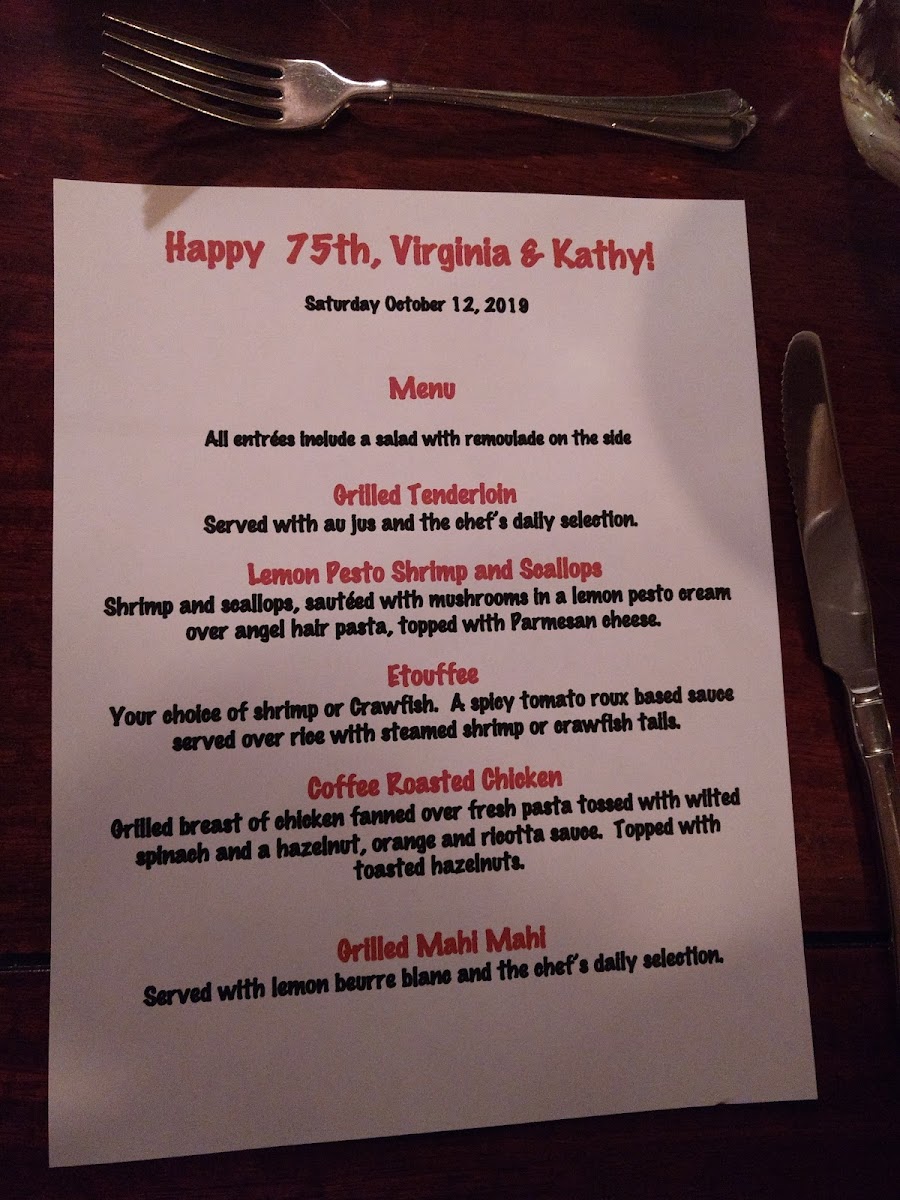 Happy 75th, Virginia & Kathy!
Saturday October 12, 2019
Menu
All entrées include a salad with remoulade on the side
Grilled Tenderloin
Served with au jus and the chef's daily selection.
Lemon Pesto Shrimp and Scallops
Shrimp and scallops, sautéed with mushrooms in a lemon pesto cream
over angel hair pasta, topped with Parmesan cheese.
Etouffee
Your choice of shrimp or Crawfish. A spicy tomato roux based sauce
served over rice with steamed shrimp or crawfish tails.
Coffee Roasted Chicken
Grilled breast of chicken fanned over fresh pasta tossed with wilted
spinach and a hazelnut, orange and ricotta sauce. Topped with
toasted hazelnuts.
Grilled Mahi Mahi
Served with lemon beurre blanc and the chef's daily selection.